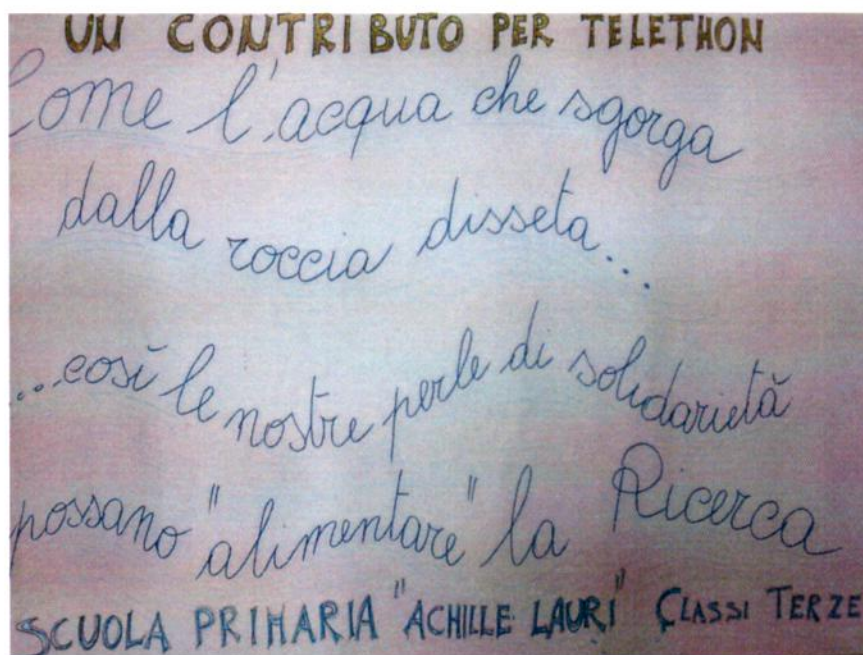 UN CONTRIBUTO PER TELETHON
Come l'acqua che sgorga
dalla roccia disseta...
...così le nostre perle di solidarietà
possano "alimentare" la Ricerca
SCUOLA PRIMARIA "ACHILLE LAURI" CLASSI TERZE